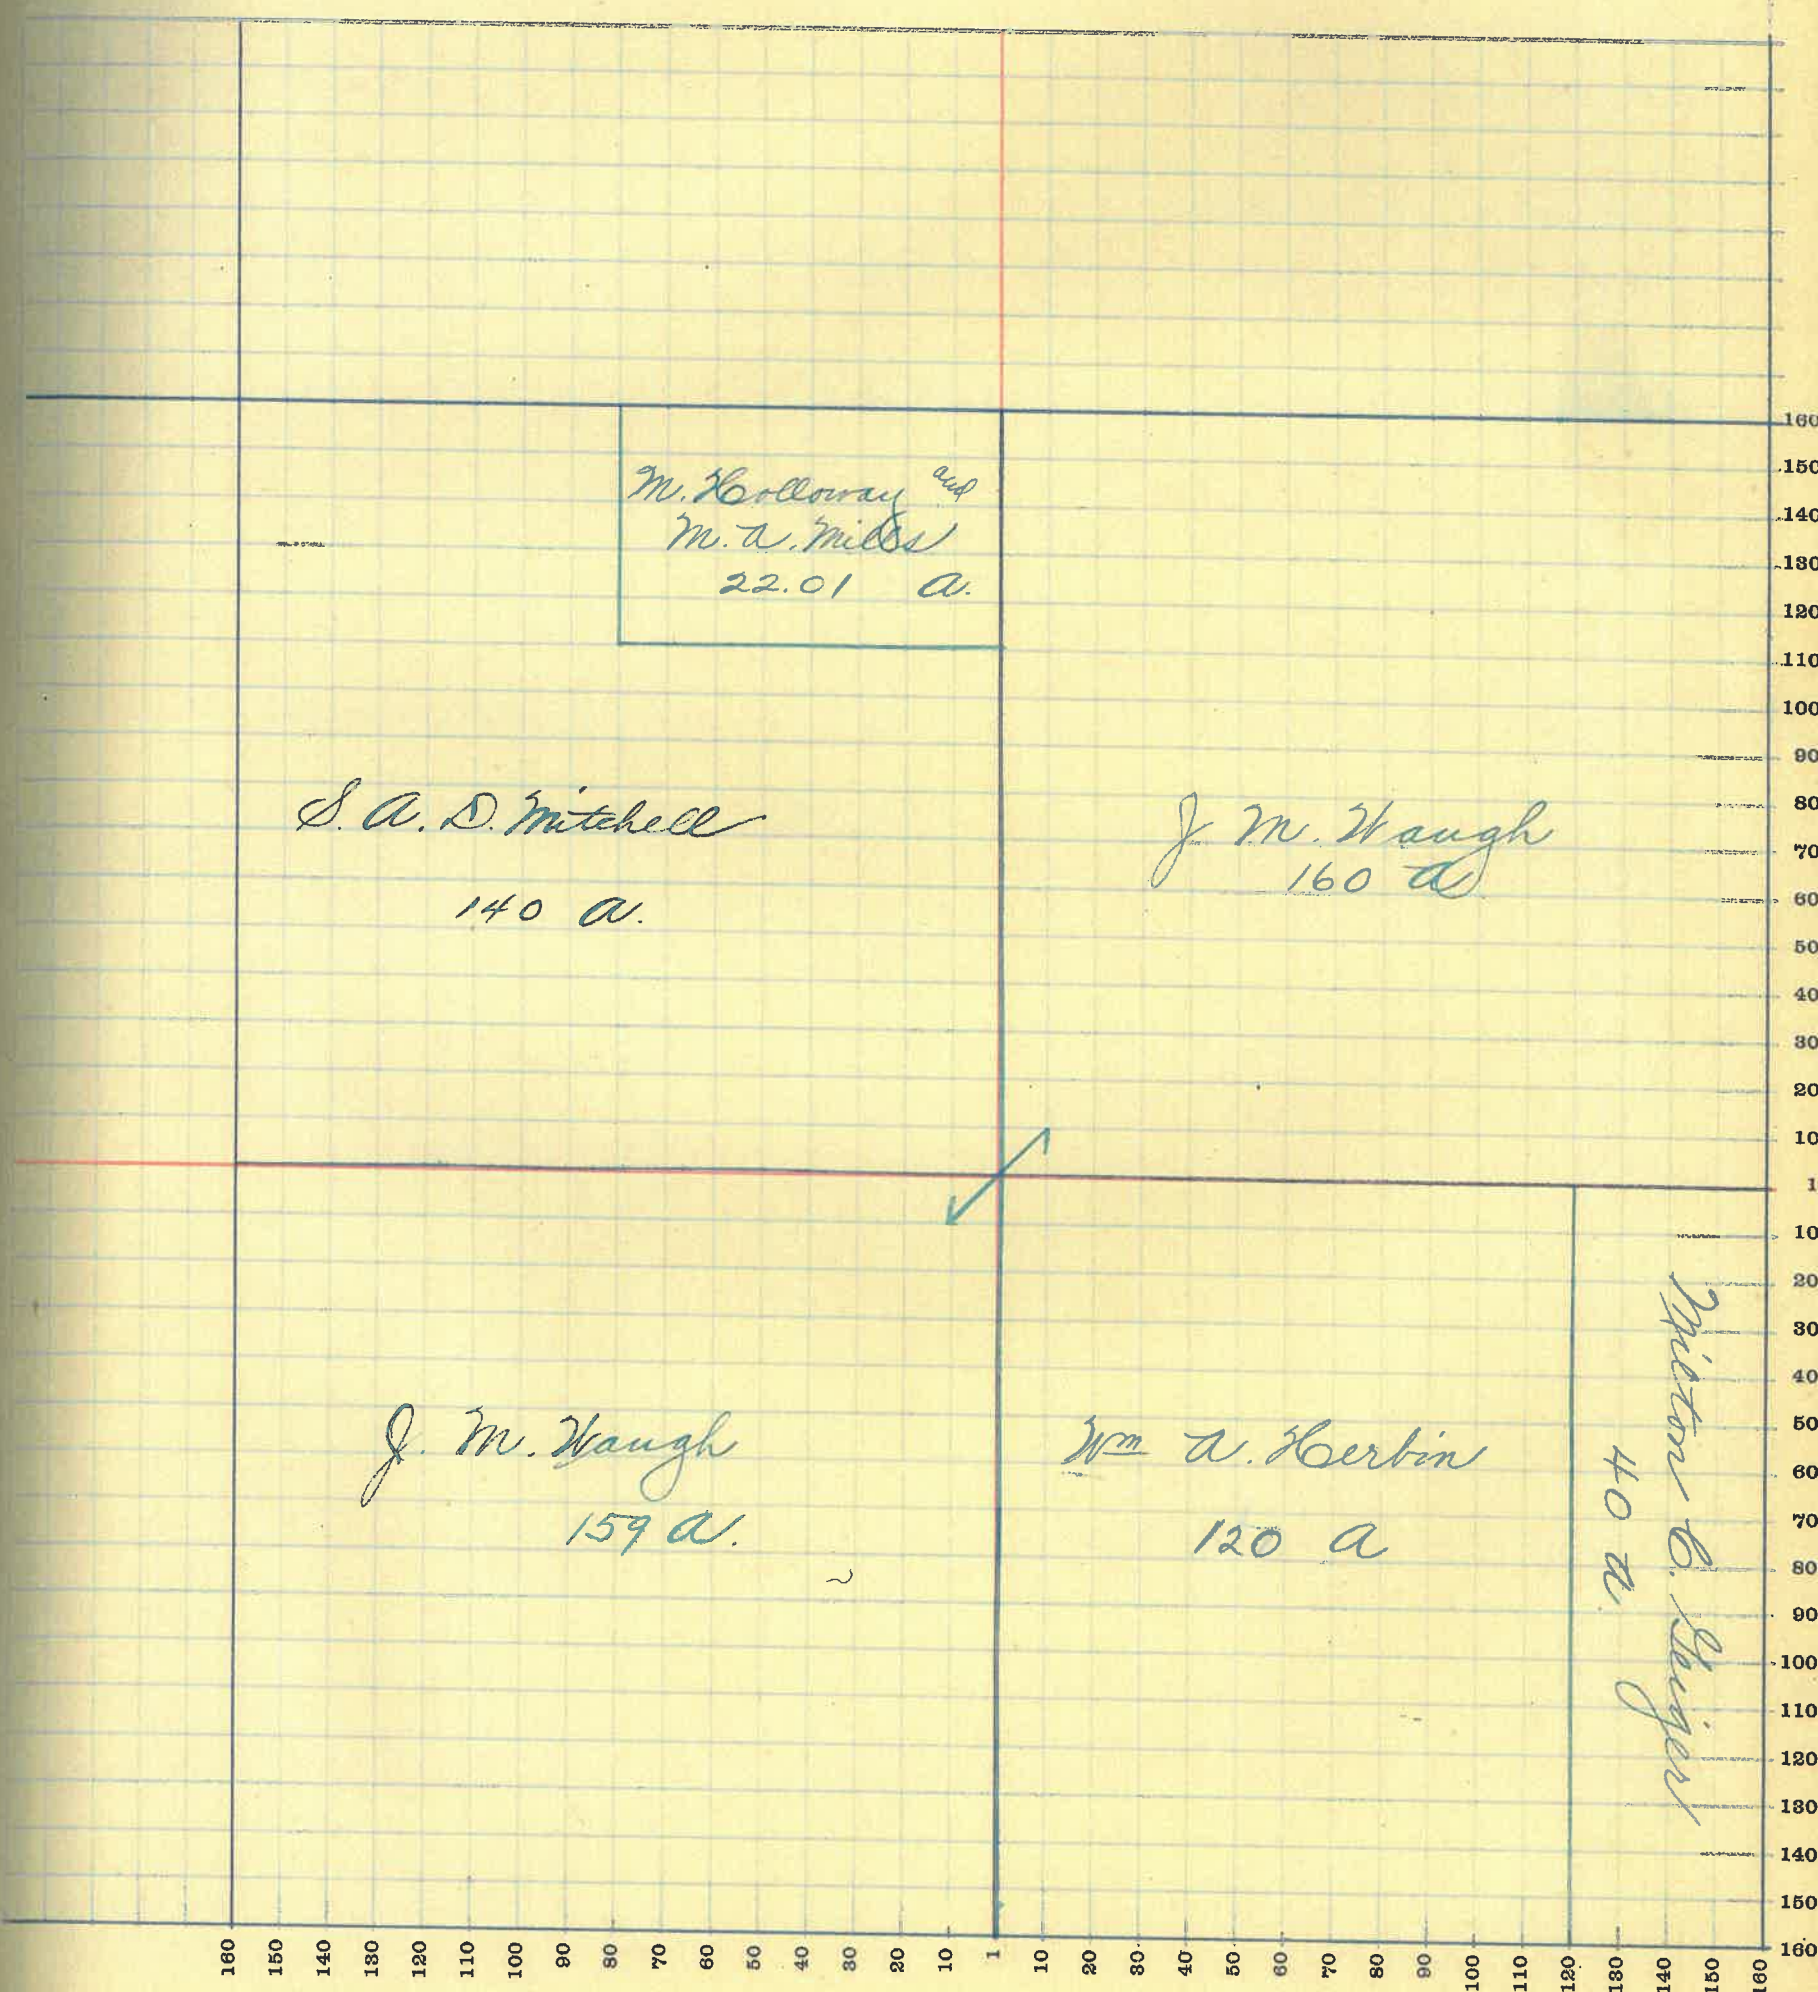 M. Holloway and
M. A. Mills
22.01 A.
S. A. D. Mitchell
140 A.
J. M. Waugh
160 A
J. M. Waugh
159 A.
Wm A. Herbin
120 A
Milton C. Geiger
40 A.
160
150
140
130
120
110
100
90
80
70
60
50
40
30
20
10
1
10
20
30
40
50
60
70
80
90
100
110
120
130
140
150
160
160 150 140 130 120 110 100 90 80 70 60 50 40 30 20 10 1 10 20 30 40 50 60 70 80 90 100 110 120 130 140 150 160